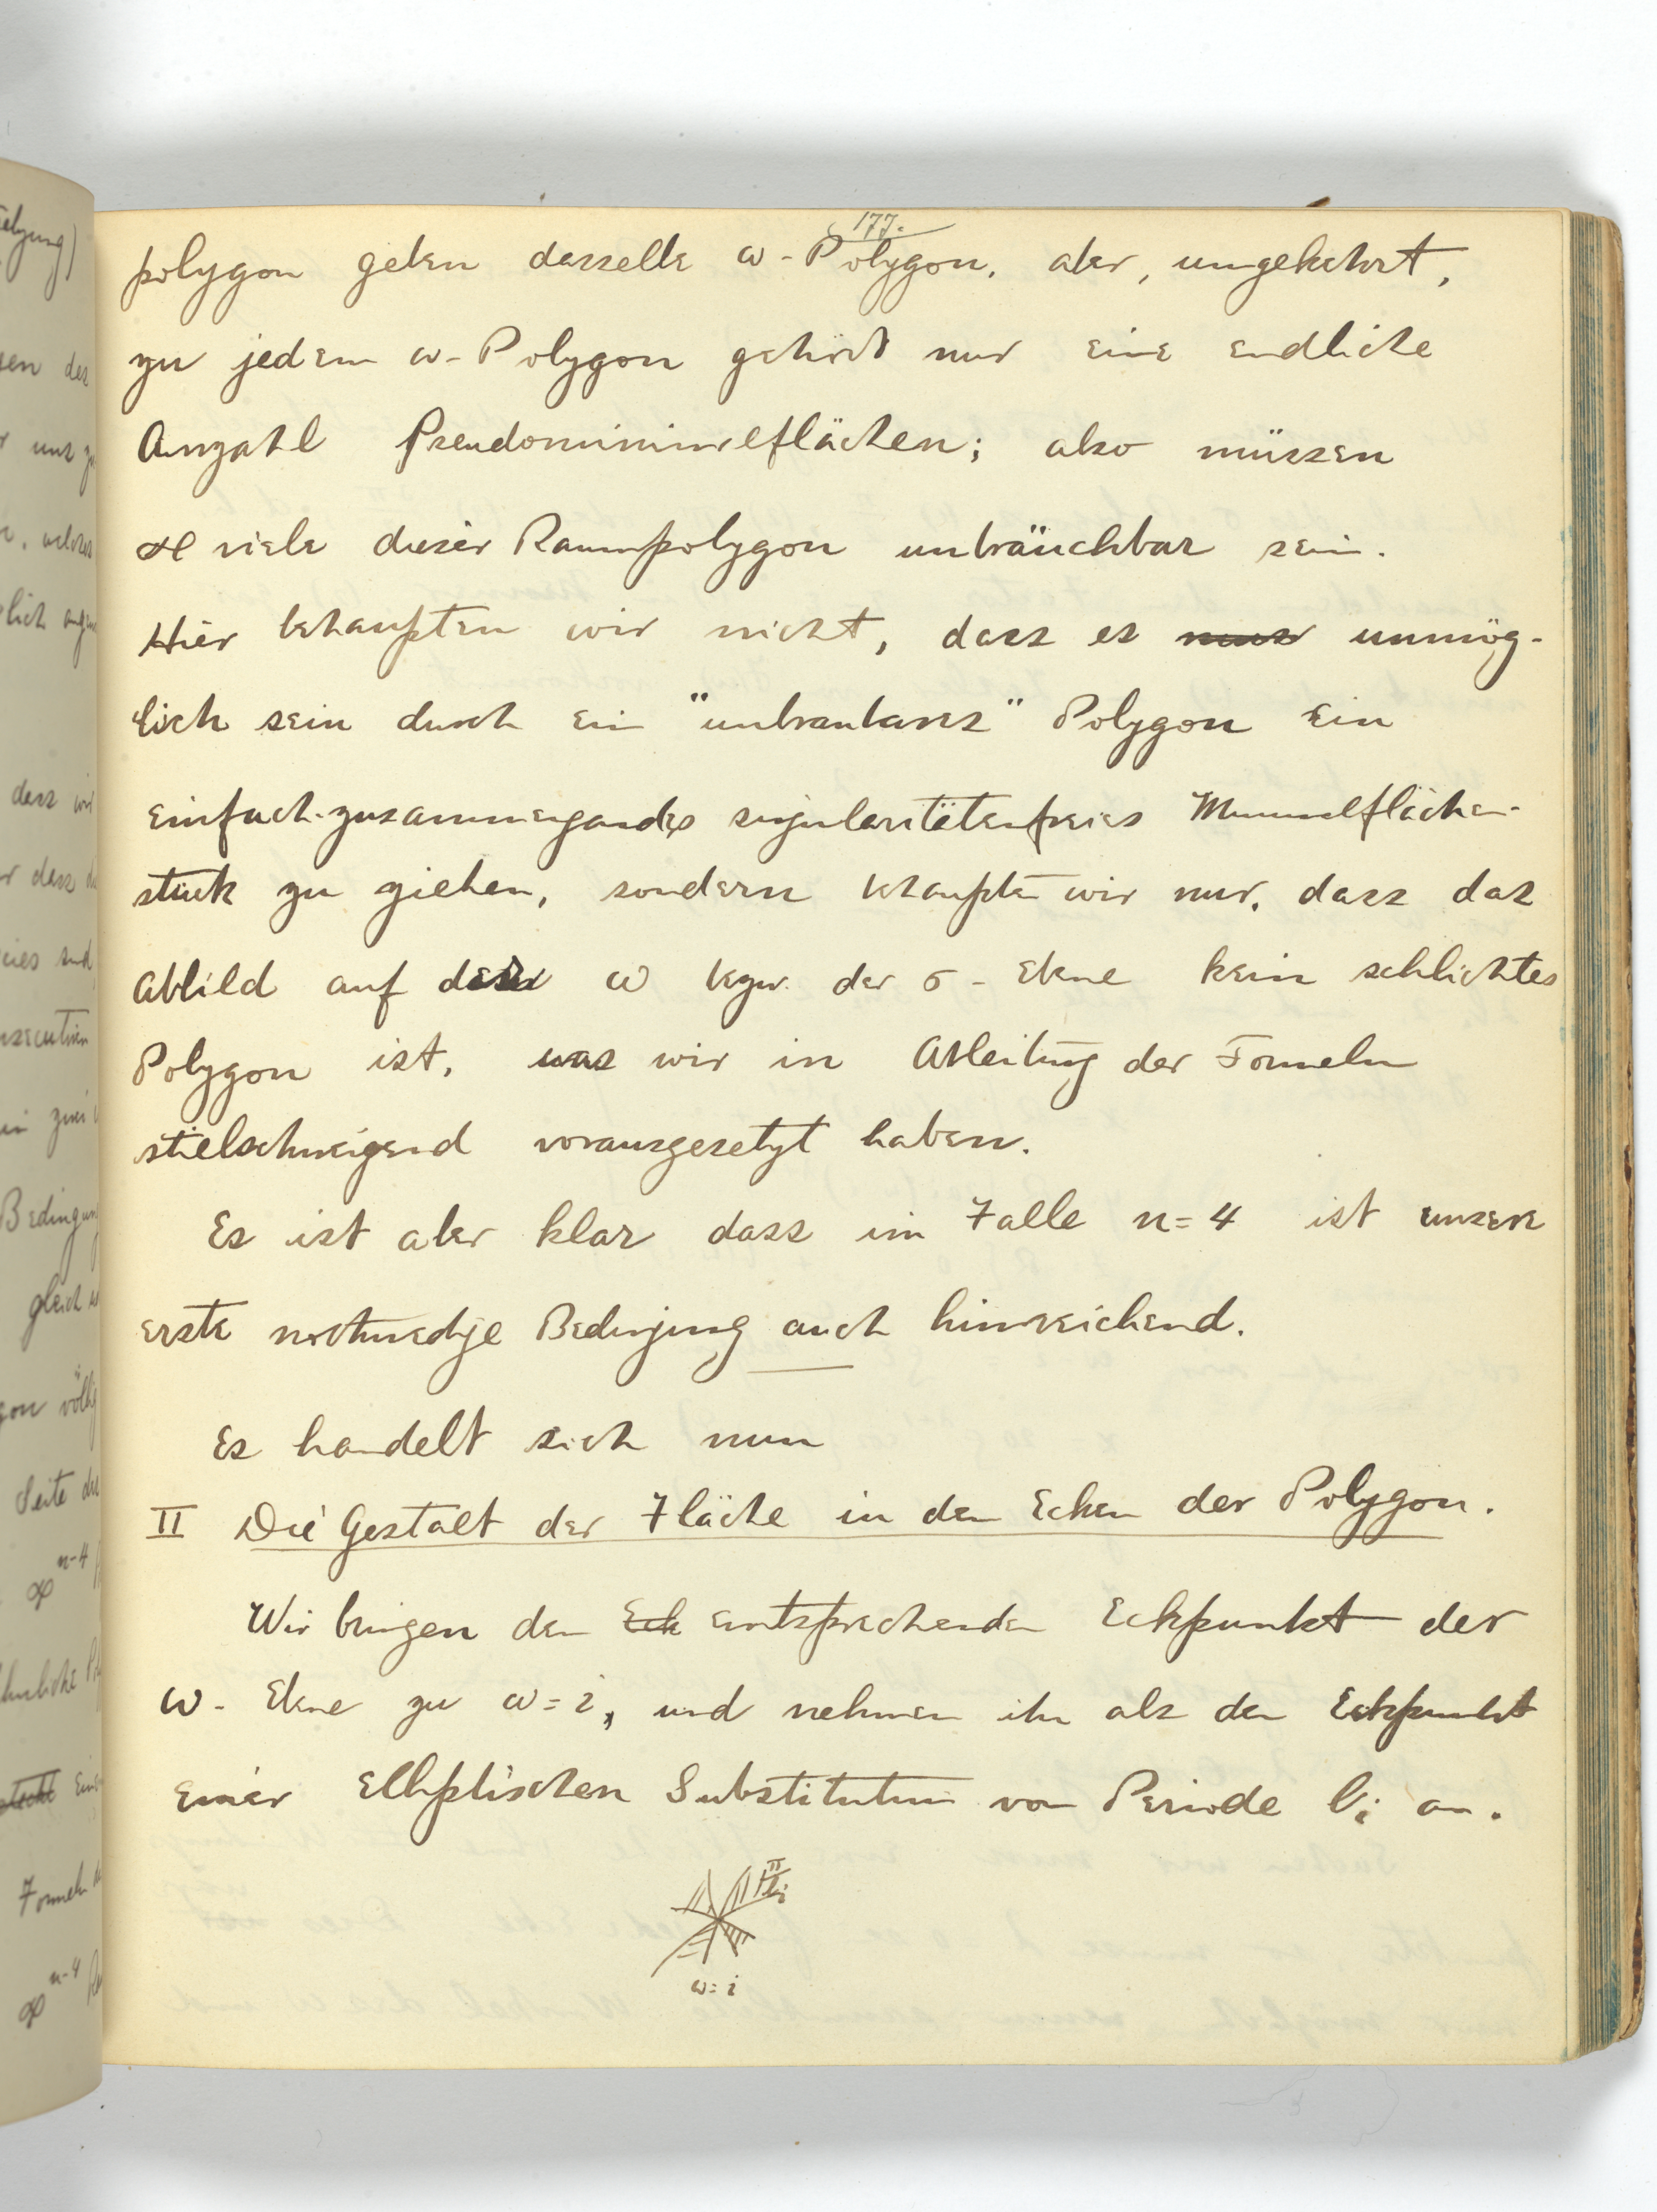 177.
polygon geben dasselbe ω-Polygon, aber, umgekehrt,
zu jedem ω-Polygon gehört nur eine endliche
Anzahl Pseudominimalflächen; also müssen
∞ viele dieser Raumpolygon unbräuchbar sein.
Hier behaupten wir nicht, dass es unmög-
lich sein durch ein "unbraubares" Polygon ein
einfach-zusammengandes singularitätenfreies Minimalflächen-
stück zu ziehen, sondern behaupten wir nur, dass das
Abbild auf der ω bezw. der σ-Ebene kein schlichtes
Polygon ist, was wir in Ableitung der Formeln
stielschweigend vorausgesetzt haben.
Es ist aber klar dass im Falle n=4 ist unsere
erste nothwedige Bedingung auch hinreichend.
Es handelt sich nun
II Die Gestalt der Fläche in den Ecken der Polygon.
Wir bringen den Eck entsprechenden Eckpunkt der
ω-Ebene zu ω=i, und nehmen ihn als den Eckpunkt
einer elliptischen Substitution von Periode li an.
π/li
ω=i